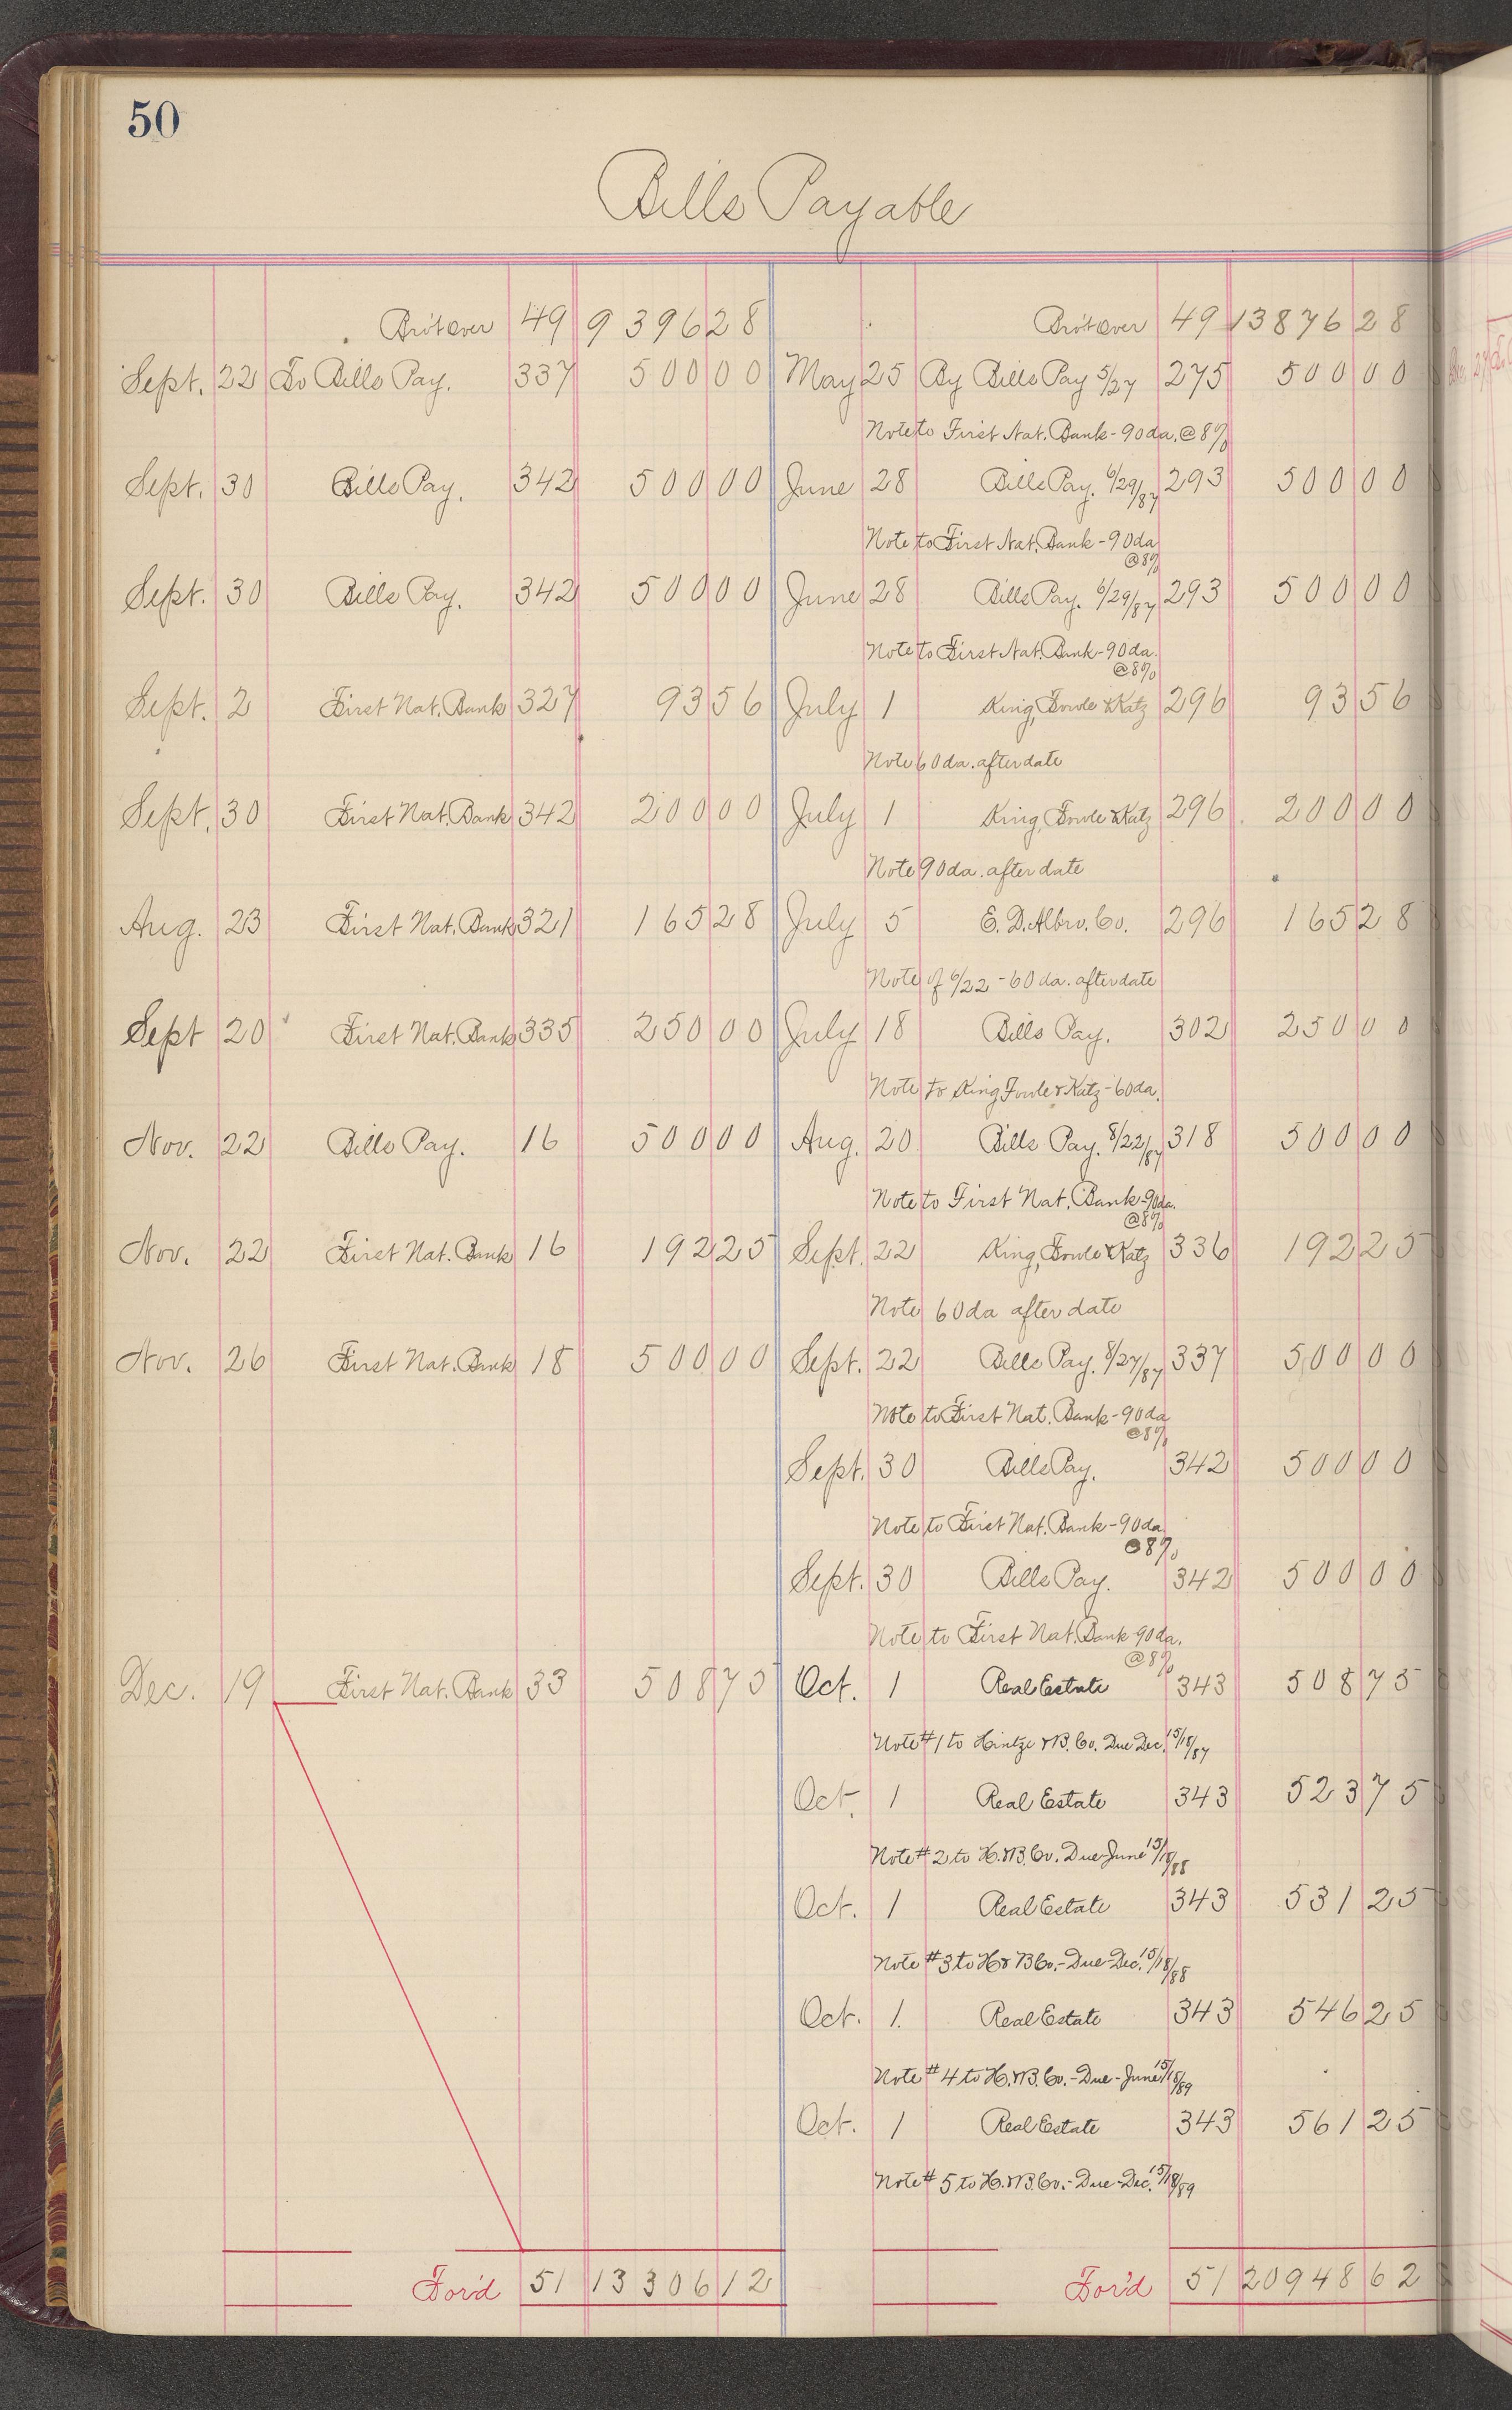 50
Bills Payable
Bro't over 49 9396 28 Bro't over 49 13876 28
Sept. 22 To Bills Pay. 337 500 00 May 25 By Bills Pay 5/27 275 500 00
Note to First Nat. Bank - 90 da. @ 8%
Sept. 30 Bills Pay. 342 500 00 June 28 Bills Pay. 6/29/87 293 500 00
Note to First Nat. Bank - 90 da
@ 8%
Sept. 30 Bills Pay. 342 500 00 June 28 Bills Pay. 6/29/87 293 500 00
Note to First Nat. Bank - 90 da.
@ 8%
Sept. 2 First Nat. Bank 327 93 56 July 1 King, Fowle & Katz 296 93 56
Note 60 da. after date
Sept. 30 First Nat. Bank 342 200 00 July 1 King, Fowle & Katz 296 200 00
Note 90 da. after date
Aug. 23 First Nat. Bank 321 165 28 July 5 E. D. Albro. Co. 296 165 28
Note of 6/22 - 60 da. after date
Sept 20 First Nat. Bank 335 250 00 July 18 Bills Pay. 302 250 00
Note to King Fowle & Katz - 60 da.
Nov. 22 Bills Pay. 16 500 00 Aug. 20 Bills Pay. 8/22/87 318 500 00
Note to First Nat. Bank - 90 da.
@ 8%
Nov. 22 First Nat. Bank 16 192 25 Sept. 22 King, Fowle & Katz 336 192 25
Note 60 da after date
Nov. 26 First Nat. Bank 18 500 00 Sept. 22 Bills Pay. 8/27/87 337 500 00
Note to First Nat. Bank - 90 da
@ 8%
Sept. 30 Bills Pay. 342 500 00
Note to First Nat. Bank - 90 da
@ 8%
Sept. 30 Bills Pay. 342 500 00
Note to First Nat. Bank 90 da.
@ 8%
Dec. 19 First Nat. Bank 33 508 75 Oct. 1 Real Estate 343 508 75
Note #1 to Hintze & B. Co. Due Dec. 15/18/87
Oct. 1 Real Estate 343 523 75
Note #2 to H. & B. Co. Due June 15/18/88
Oct. 1 Real Estate 343 531 25
Note #3 to H & B Co. - Due - Dec. 15/18/88
Oct. 1. Real Estate 343 546 25
Note #4 to H. & B. Co. - Due - June 15/18/89
Oct. 1 Real Estate 343 561 25
Note #5 to H. & B. Co. - Due - Dec. 15/18/89
For'd 51 13306 12 For'd 51 20948 62